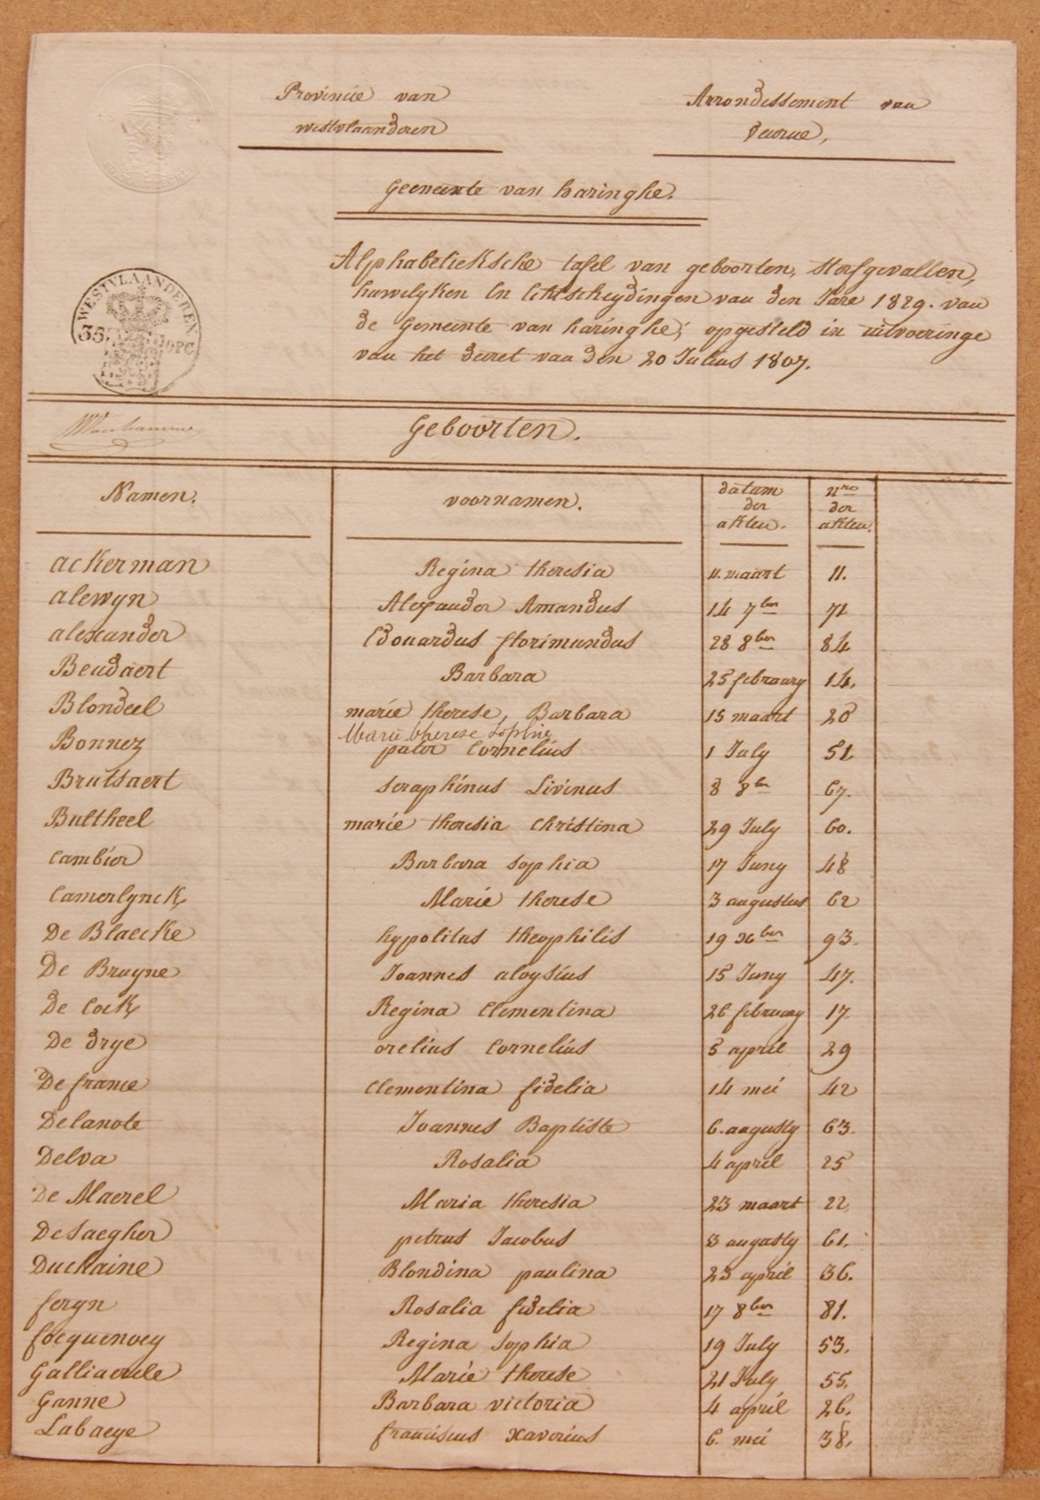 Provincie van
westvlaanderen
Arrondissement van
veurne,
Gemeente van haringhe.
WESTVLAANDEREN
35
Alphabetieksche tafel van geboorten, sterfgevallen,
huwelyken En Echtscheydingen van den Jare 1829. van
de Gemeente van haringhe, opgesteld in uitvoeringe
van het decret van den 20 Julius 1807.
Geboorten.
Namen. voornamen. datum der akten. nros der akten.
ackerman Regina theresia 11. maart 11.
alewyn Alexander Amandus 14 7ber 71
alexander Edouardus florimundus 28 8ber 84
Beudaert Barbara 25 february 14.
Blondeel marie therese, Barbara 15 maart 20
Marie therese sophie
Bonnez pieter Cornelius 1 July 51
Brutsaert seraphinus Livinus 8 8ber 67.
Bultheel marie theresia Christina 29 July 60.
Cambier Barbara sophia 17 Juny 48
Camerlynck Marie therese 3 augustus 62
De Blaecke hypolitus theophilis 19 Xber 93.
De Bruyne Joannes aloysius 15 Juny 47.
De Cock Regina Clementina 26 february 17
De drye orelius Cornelius 5 april 29
De france Clementina fidelia 14 mei 42
Delanote Joannes Baptiste 6. augusty 63.
Delva Rosalia 4 april 25
De Maerel Maria theresia 23 maart 22
De saegher petrus Jacobus 3 augusty 61.
Duchaine Blondina paulina 23 april 36.
feryn Rosalia fidelia 17 8ber 81.
focquenoey Regina sophia 19 July 53.
Galliaerde Marie therese 21 July 55.
Ganne Barbara victoria 4 april 26.
Labaeye franciscus xaverius 6. mei 38.